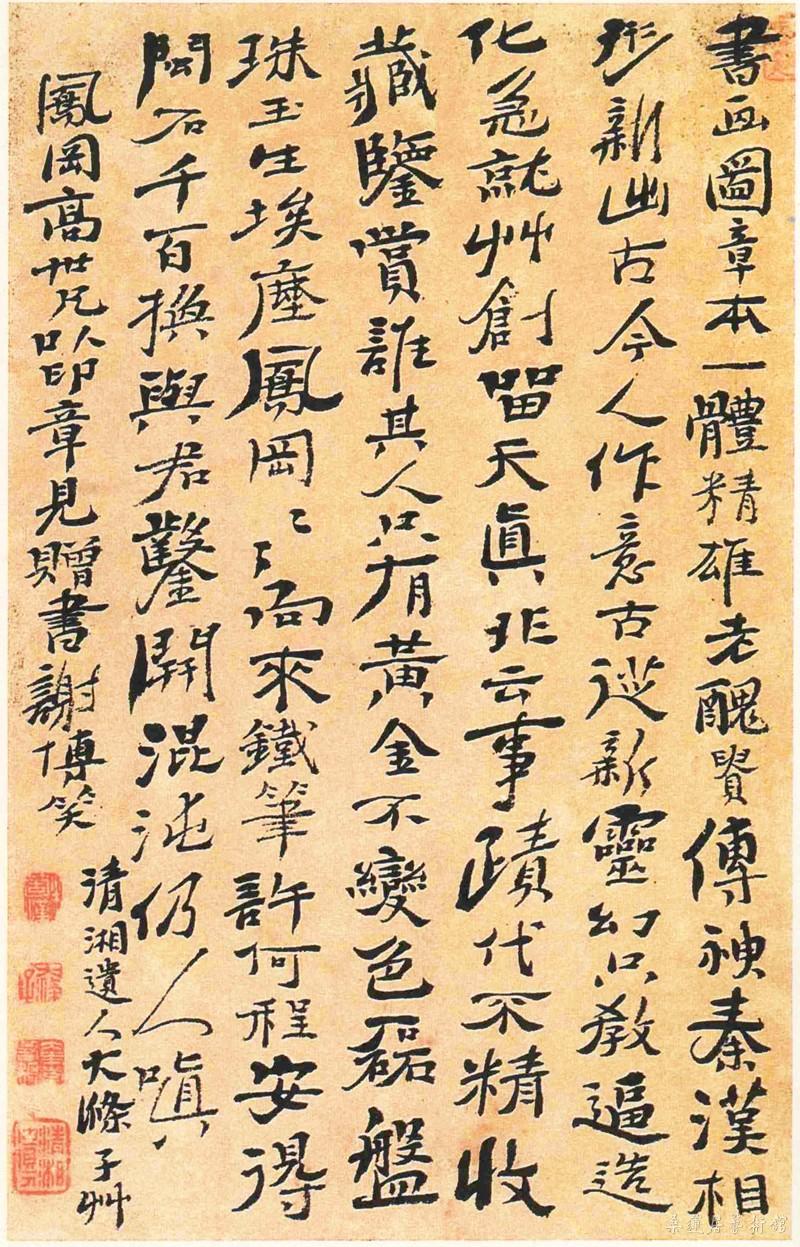 書画圖章本一體精雄老醜貴傳神秦漢相
形新出古今人作意古從新靈幻只教逼造
化急就艸創留天真非云事蹟代不精收
藏鑒賞誰其人只有黃金不變色磊盤
珠玉生埃塵鳳岡鳳岡向來鐵筆許何程安得
閩石千百換與君鑿開混沌仍人嗔
鳳岡高世兄以印章見贈書謝博笑
清湘遺人大滌子艸
清湘
桑蓮居藝術館